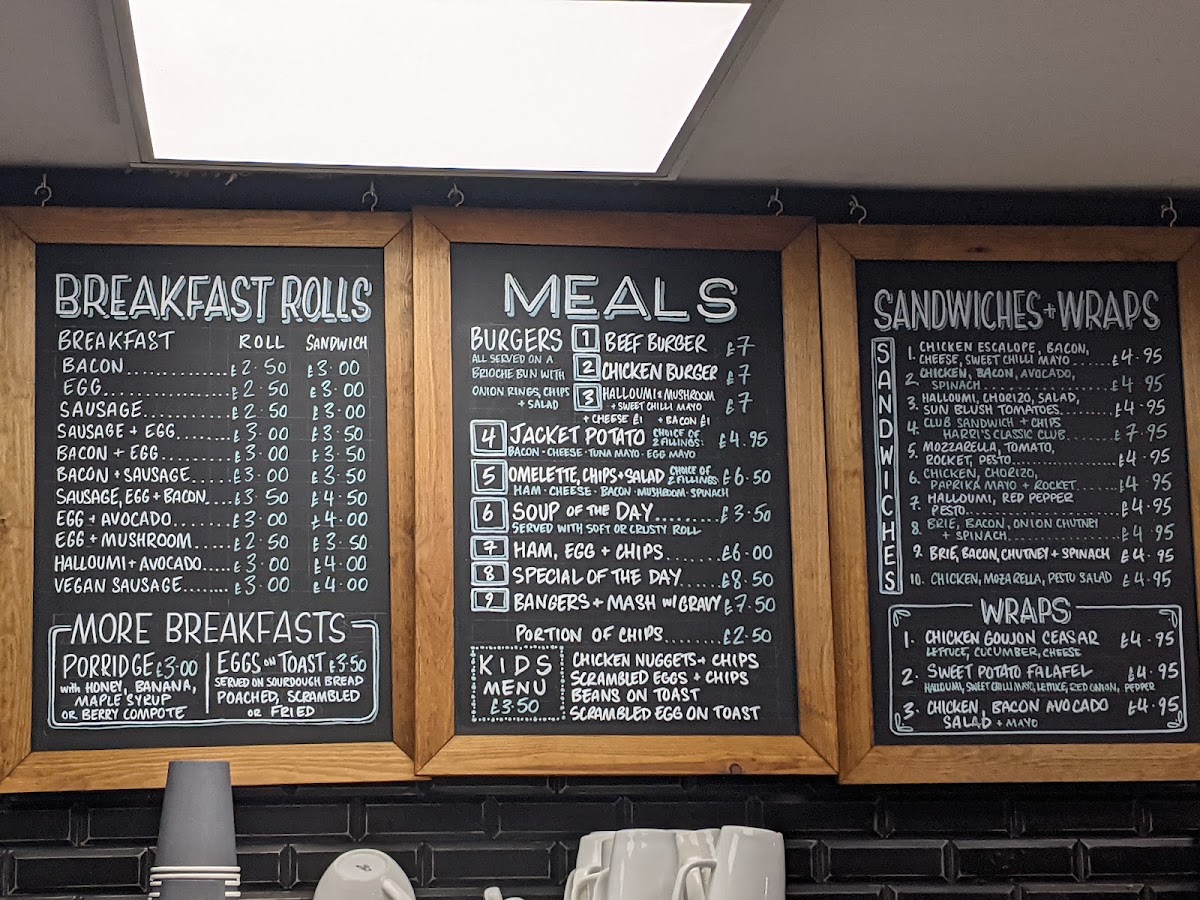 BREAKFAST ROLLS
BREAKFAST ROLL SANDWICH
BACON..............£2.50 £3.00
EGG..................£2.50 £3.00
SAUSAGE............£2.50 £3.00
SAUSAGE + EGG.......£3.00 £3.50
BACON + EGG.........£3.00 £3.50
BACON + SAUSAGE.....£3.00 £3.50
SAUSAGE, EGG + BACON....£3.50 £4.50
EGG + AVOCADO........£3.00 £4.00
EGG + MUSHROOM......£2.50 £3.50
HALLOUMI + AVOCADO....£3.00 £4.00
VEGAN SAUSAGE.......£3.00 £4.00
MORE BREAKFASTS
PORRIDGE £3.00
with HONEY, BANANA,
MAPLE SYRUP
OR BERRY COMPOTE
EGGS ON TOAST £3.50
SERVED ON SOURDOUGH BREAD
POACHED, SCRAMBLED
OR FRIED
MEALS
BURGERS
ALL SERVED ON A
BRIOCHE BUN WITH
ONION RINGS, CHIPS
+ SALAD
1 BEEF BURGER £7
2 CHICKEN BURGER £7
3 HALLOUMI & MUSHROOM £7
+ SWEET CHILLI MAYO
+ CHEESE £1 + BACON £1
4 JACKET POTATO CHOICE OF 2 FILLINGS: £4.95
BACON - CHEESE - TUNA MAYO - EGG MAYO
5 OMELETTE, CHIPS + SALAD CHOICE OF 2 FILLINGS £6.50
HAM - CHEESE - BACON - MUSHROOM - SPINACH
6 SOUP OF THE DAY.........£3.50
SERVED WITH SOFT OR CRUSTY ROLL
7 HAM, EGG + CHIPS........£6.00
8 SPECIAL OF THE DAY......£8.50
9 BANGERS + MASH W/ GRAVY £7.50
PORTION OF CHIPS........£2.50
KIDS
MENU
£3.50
CHICKEN NUGGETS + CHIPS
SCRAMBLED EGGS + CHIPS
BEANS ON TOAST
SCRAMBLED EGG ON TOAST
SANDWICHES + WRAPS
SANDWICHES
1. CHICKEN ESCALOPE, BACON,
CHEESE, SWEET CHILLI MAYO........£4.95
2. CHICKEN, BACON, AVOCADO,
SPINACH....................£4.95
3. HALLOUMI, CHORIZO, SALAD,
SUN BLUSH TOMATOES........£4.95
4. CLUB SANDWICH + CHIPS
HARRI'S CLASSIC CLUB.......£7.95
5. MOZZARELLA, TOMATO,
ROCKET, PESTO................£4.95
6. CHICKEN, CHORIZO,
PAPRIKA MAYO + ROCKET.......£4.95
7. HALLOUMI, RED PEPPER
PESTO.......................£4.95
8. BRIE, BACON, ONION CHUTNEY
+ SPINACH...................£4.95
9. BRIE, BACON, CHUTNEY + SPINACH £4.95
10. CHICKEN, MOZARELLA, PESTO SALAD £4.95
WRAPS
1. CHICKEN GOUJON CEASAR £4.95
LETTUCE, CUCUMBER, CHEESE
2. SWEET POTATO FALAFEL £4.95
HALLOUMI, SWEET CHILLI MAYO, LETTUCE, RED ONION, PEPPER
3. CHICKEN, BACON AVOCADO £4.95
SALAD + MAYO